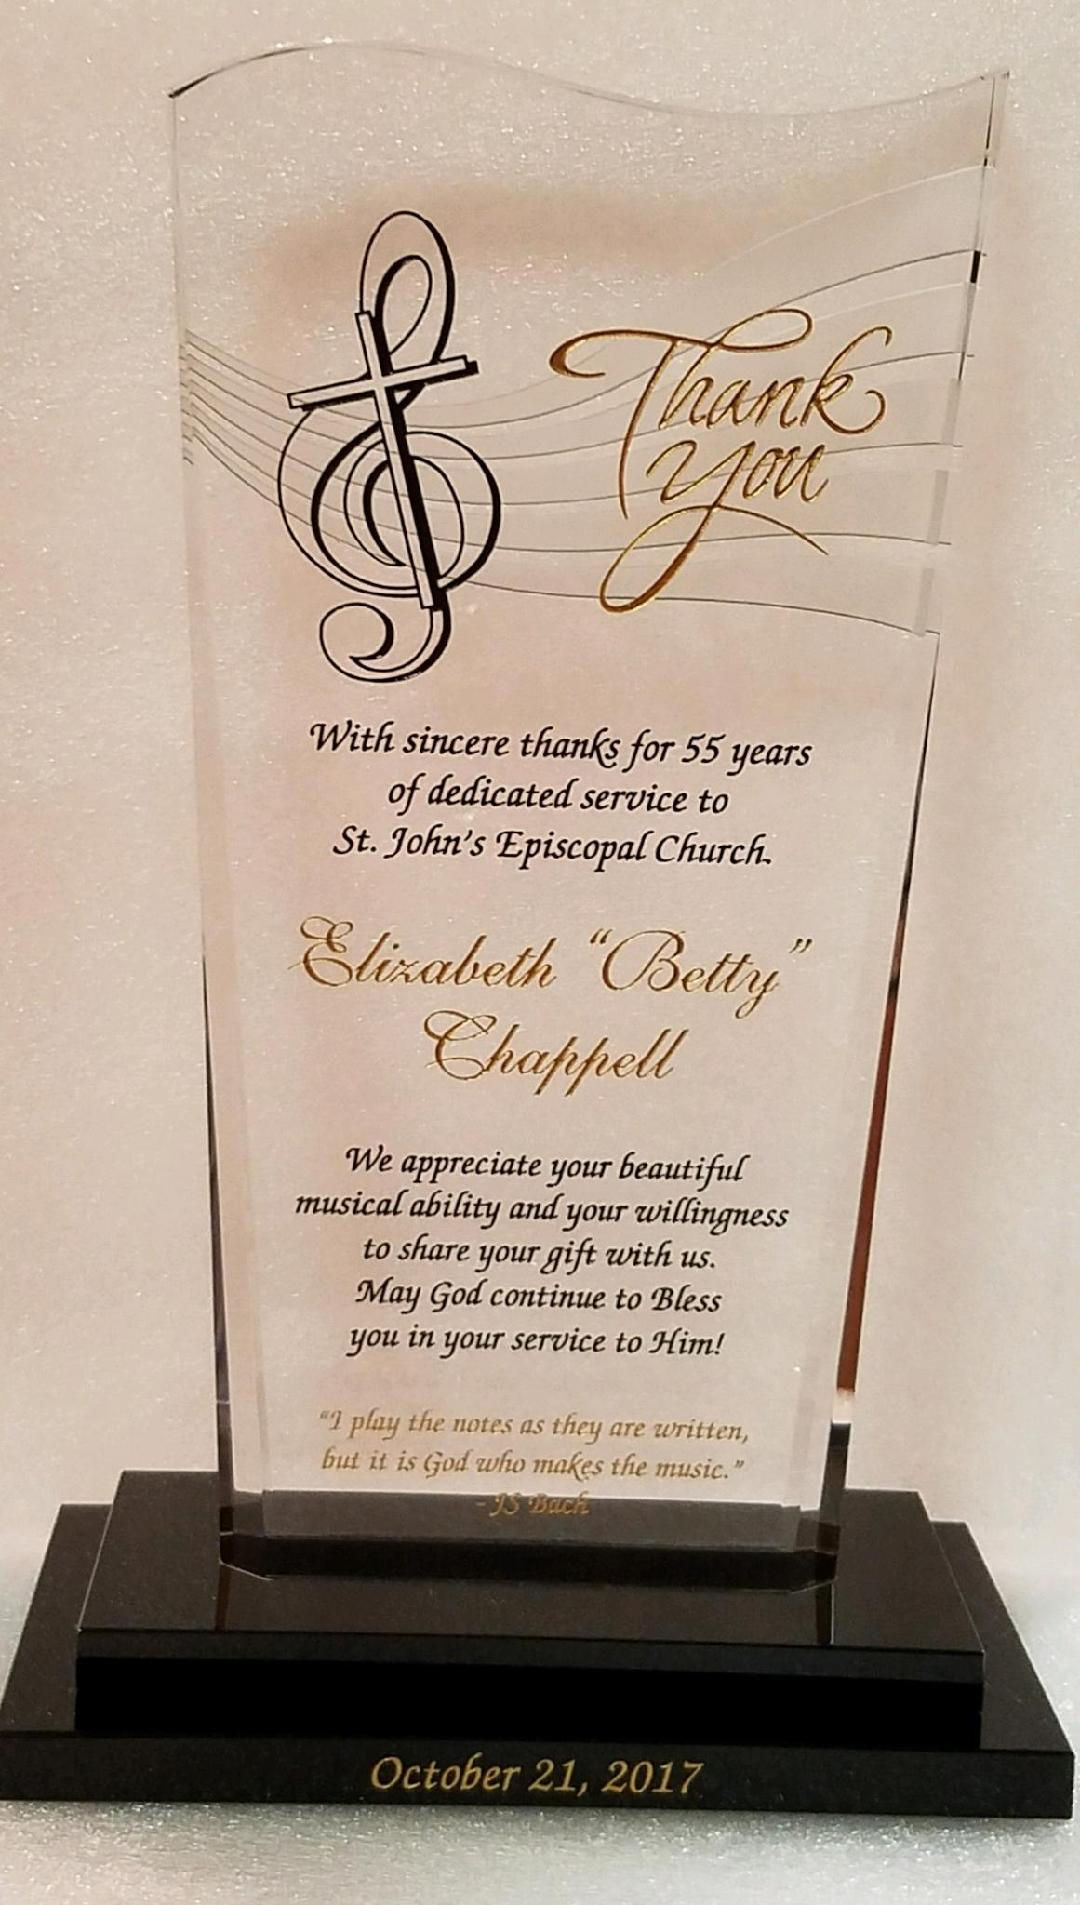 Thank
you
With sincere thanks for 55 years
of dedicated service to
St. John's Episcopal Church.
Elizabeth “Betty”
Chappell
We appreciate your beautiful
musical ability and your willingness
to share your gift with us.
May God continue to Bless
you in your service to Him!
“I play the notes as they are written,
but it is God who makes the music.”
- JS Bach
October 21, 2017